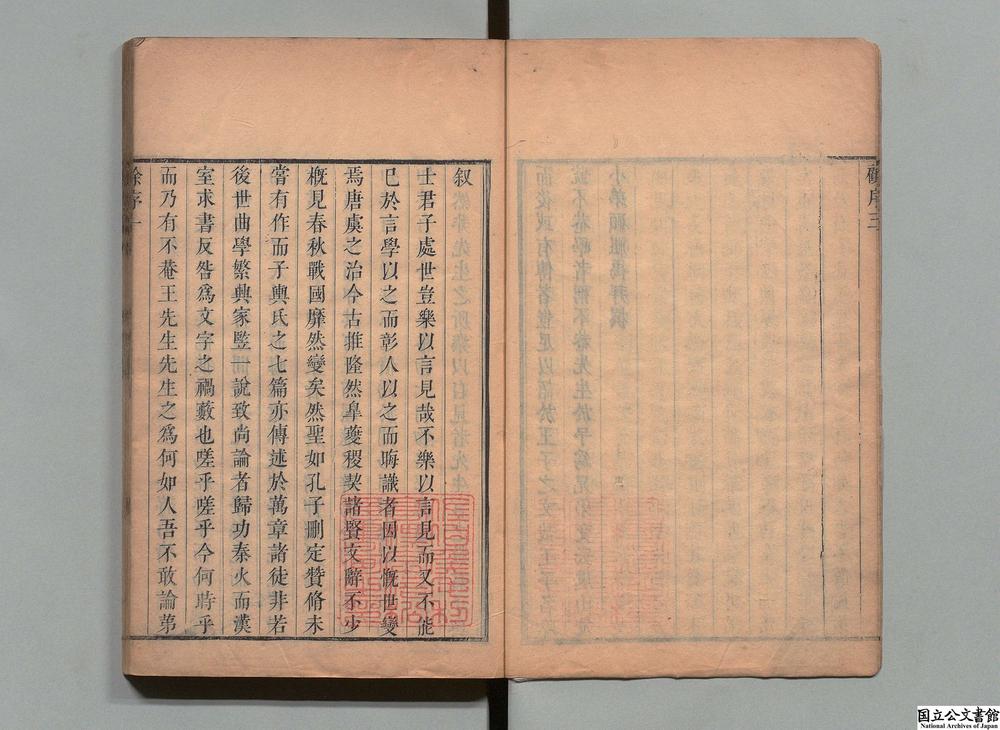 顧序三
叙
士君子處世豈樂以言見哉不樂以言見而又不能
已於言學以之而彰人以之而晦識者因以慨世變
焉唐虞之治今古推隆然臯夔稷契諸賢文辭不少
概見春秋戰國靡然變矣然聖如孔子刪定贊脩未
嘗有作而子輿氏之七篇亦傳述於萬章諸徒非若
後世曲學繁興家監一說致尚論者歸功秦火而漢
室求書反咎爲文字之禍藪也嗟乎嗟乎今何時乎
而乃有不菴王先生先生之爲何如人吾不敢論第
徐序一
国立公文書館
National Archives of Japan